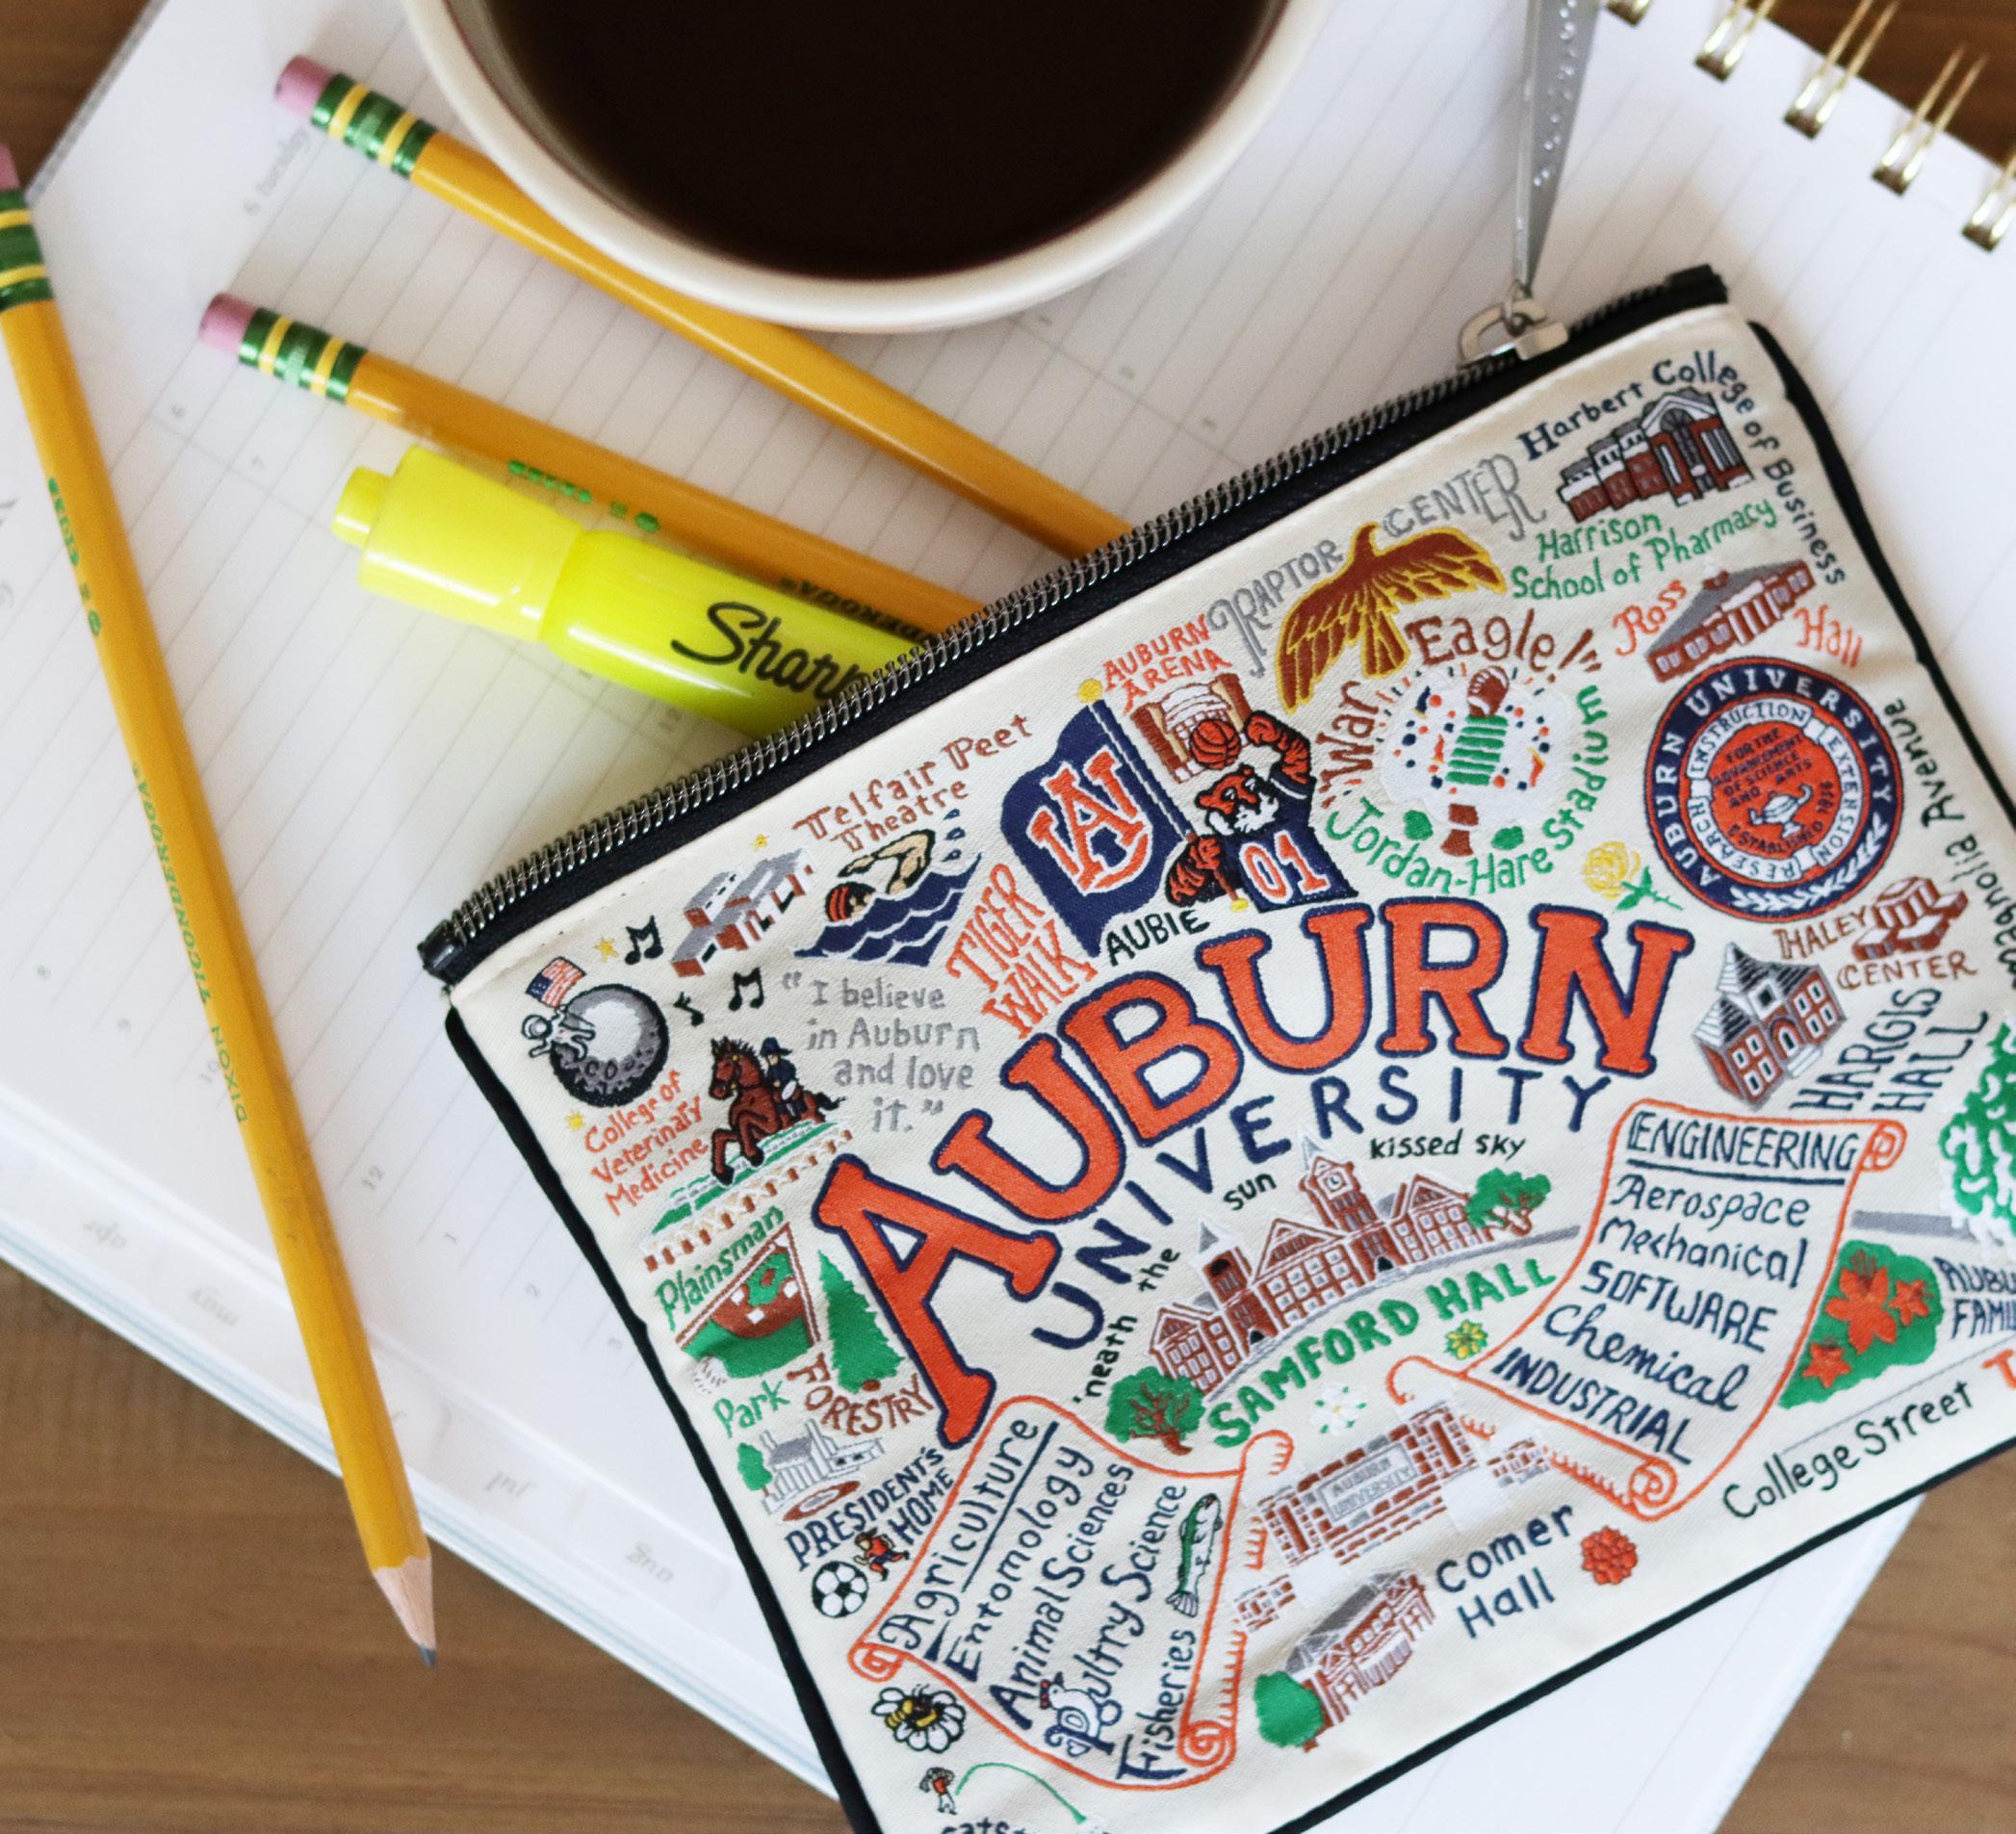 Sharp
DIXON TICONDEROGA
Harbert College of Business
Harrison
School of Pharmacy
RAPTOR CENTER
War Eagle!
Jordan-Hare Stadium
Ross Hall
AUBURN
ARENA
Telfair Peet
Theatre
AUBURN UNIVERSITY
INSTRUCTION
EXTENSION
RESEARCH
FOR THE
ADVANCEMENT
OF SCIENCE
AND ARTS
ESTABLISHED 1856
Magnolia Avenue
HALEY
CENTER
HARGIS
HALL
AU
01
AUBIE
TIGER
WALK
"I believe
in Auburn
and love
it."
College of
Veterinary
Medicine
AUBURN
UNIVERSITY
'neath the sun kissed sky
SAMFORD HALL
Plainsman
Park
FORESTRY
PRESIDENT'S
HOME
ENGINEERING
Aerospace
Mechanical
SOFTWARE
Chemical
INDUSTRIAL
Agriculture
Entomology
Animal Sciences
Poultry Science
Fisheries
AUBURN
UNIVERSITY
Comer
Hall
College Street
jul
aug
may
apr